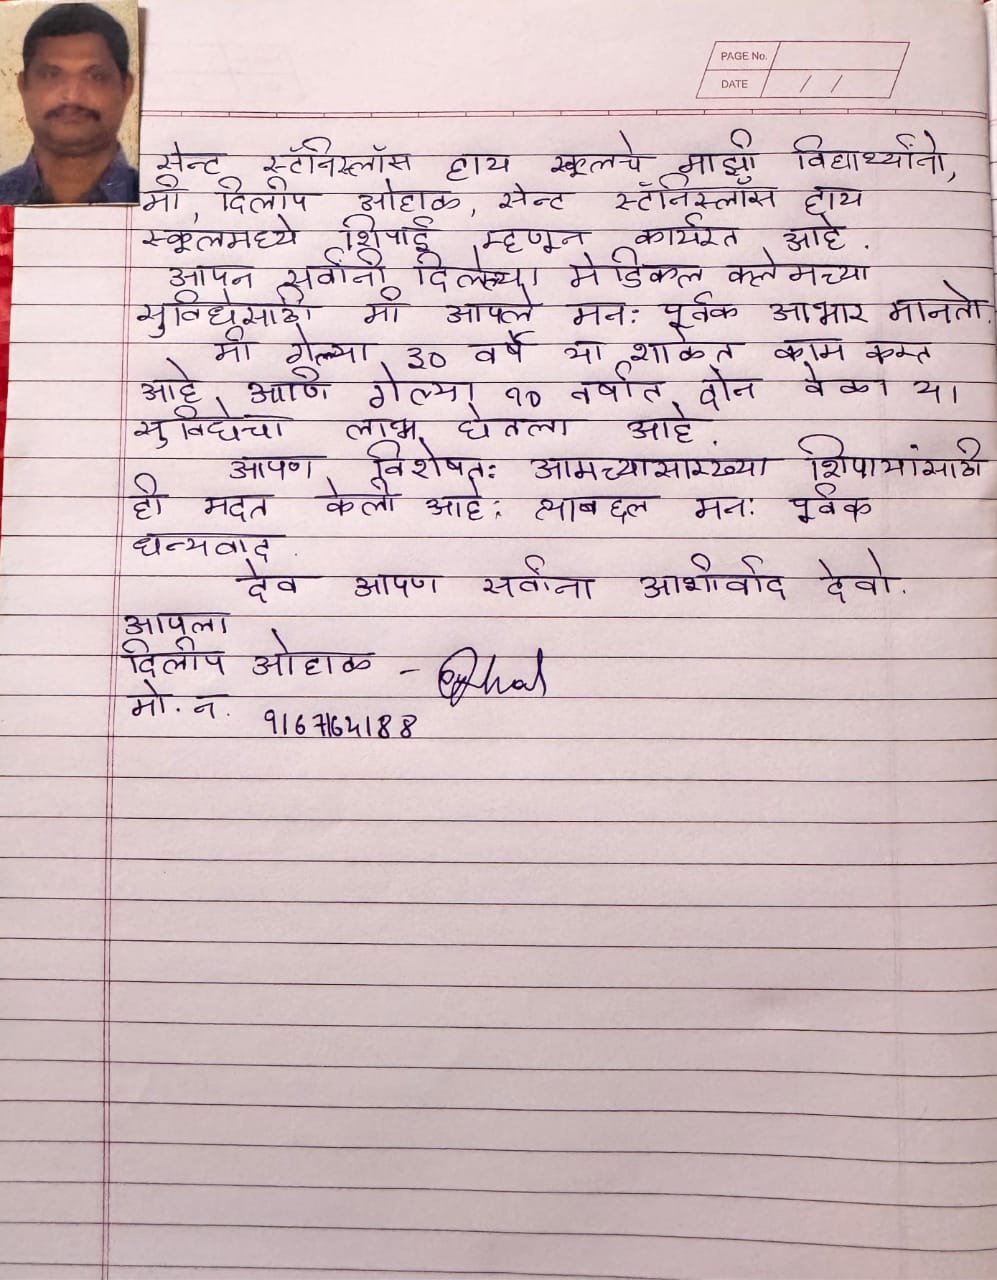 PAGE No.
DATE / /
सेन्ट स्टॅनिस्लॉस हाय स्कूलचे माझी विद्यार्थ्यांनो,
मी, दिलीप ओहाळ, सेन्ट स्टॅनिस्लॉस हाय
स्कूलमध्ये शिपाई म्हणून कार्यरत आहे.
आपन सर्वांनी दिलेल्या मेडिकल क्लेमच्या
सुविधेसाठी मी आपले मनः पूर्वक आभार मानतो.
मी गेल्या ३० वर्षे या शाळेत काम करत
आहे, आणि गेल्या १० वर्षात दोन वेळा या
सुविधेचा लाभ घेतला आहे.
आपण विशेषतः आमच्यासारख्या शिपायांसाठी
ही मदत केली आहे; त्याबद्दल मनः पूर्वक
धन्यवाद.
देव आपण सर्वांना आशीर्वाद देवो.
आपला
दिलीप ओहाळ -
मो. न.
9167164188